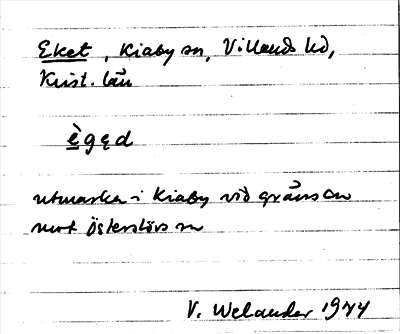 Eket, Kiaby sn, Villands hd,
Krist. län
ègęd
utmarker i Kiaby vid gränsen
mot Österslövs sn
V. Welander 1944